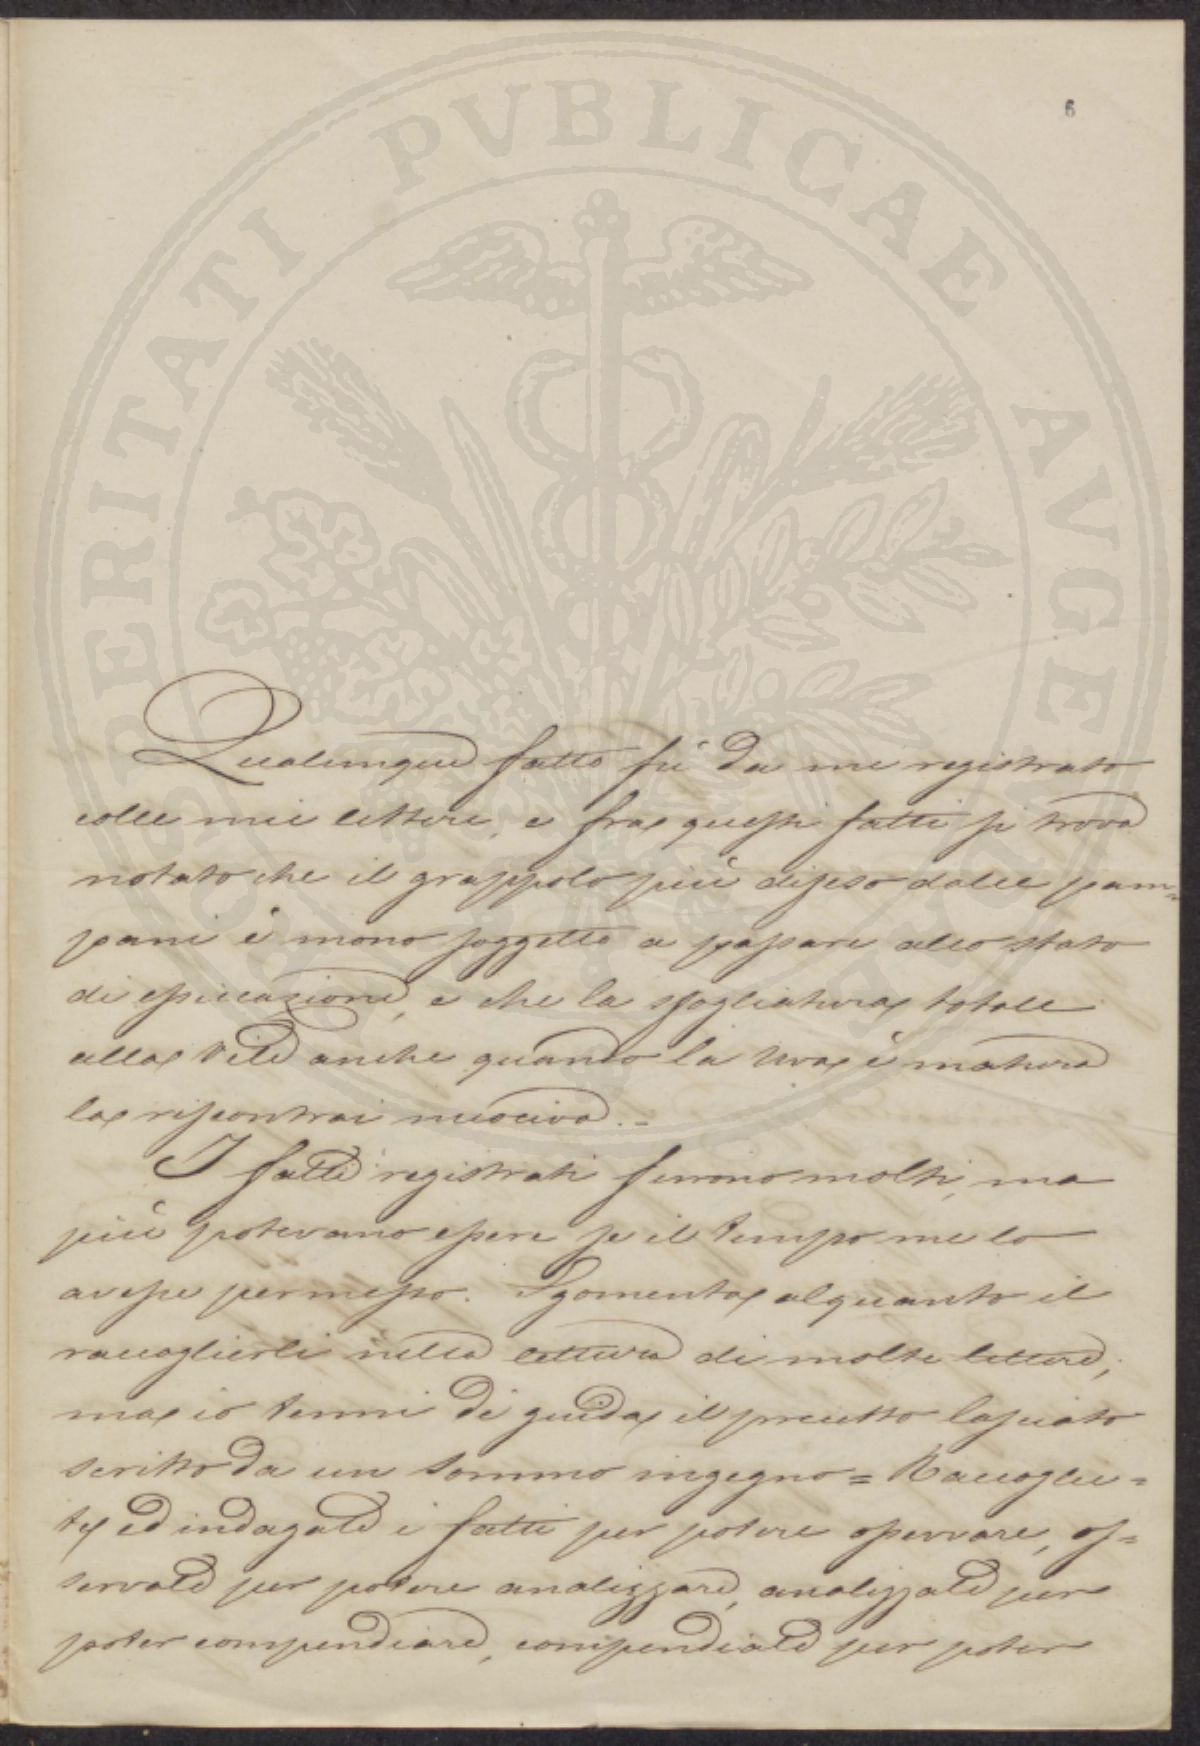 6
Qualunque fatto fù da me registrato
colle mie lettere, e fra questi fatti si trova
notato che il grappolo più difeso dalle pam=
pani è meno soggetto a passare allo stato
di essiccazione, e che la sfogliatura totale
alla vite anche quando la uva è matura
la riscontrai nuociva.=
I fatti registrati furono molti, ma
più potevano essere se il tempo me lo
avesse permesso. Sgomenta alquanto il
raccoglierli nella lettura di molte lettere;
ma io tenni di guida il precetto lasciato
scritto da un sommo ingegno = Raccoglie=
te ed indagate i fatti per potere osservare, os=
servate per potere analizzare, analizzate per
poter compendiare, compendiate per poter
PROSPERITATI PVBLICAE AVGENDAE